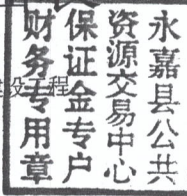 永嘉县公共
资源交易中心
保证金专户
财务专用章
程